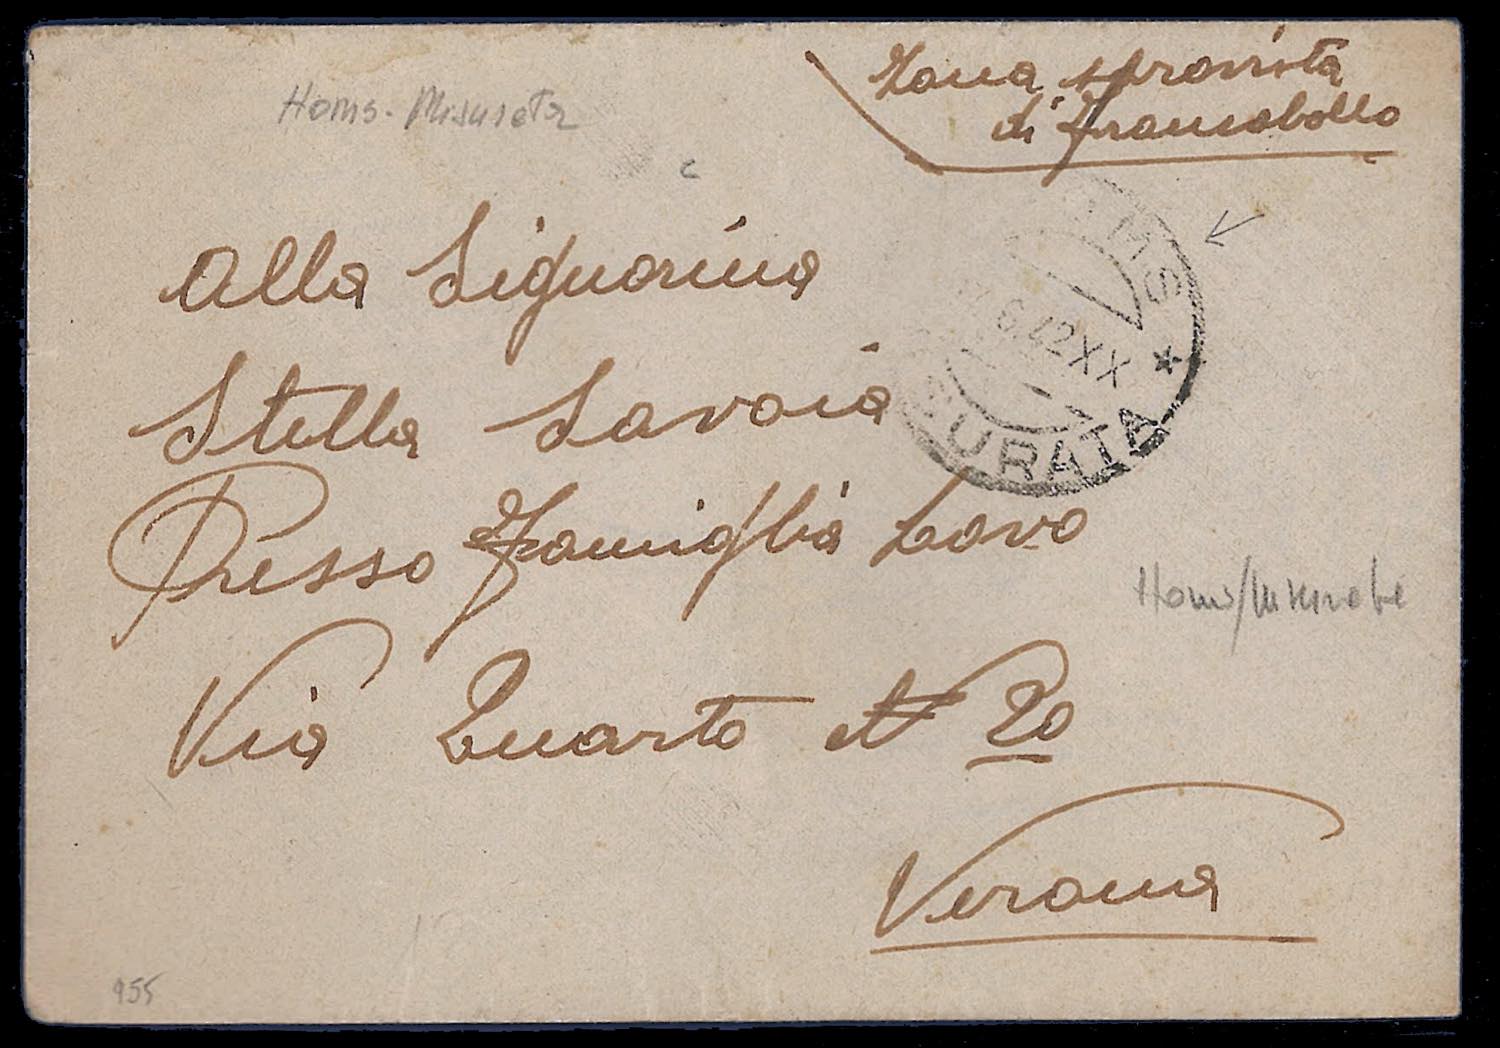 Zona sprovvista
di francobollo
Homs - Misurata
Alla Signorina
Stella Savoia
Presso Famiglia Lovo
Via Quarto N 20
Verona
OMS
6.42 XX
SURATA *
Homs/Misurata
955